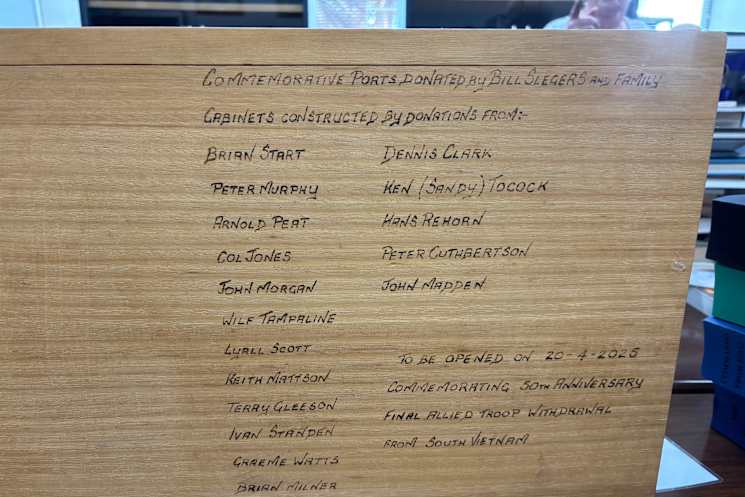 COMMEMORATIVE PORTS DONATED BY BILL SLEGERS AND FAMILY
CABINETS CONSTRUCTED BY DONATIONS FROM:-
BRIAN START DENNIS CLARK
PETER MURPHY KEN (SANDY) TOCOCK
ARNOLD PEAT HANS REHORN
COL JONES PETER CUTHBERTSON
JOHN MORGAN JOHN MADDEN
WILF TAMPALINE
LYALL SCOTT
KEITH MATTSON
TERRY GLEESON
IVAN STANDEN
GRAEME WATTS
BRIAN MILNER
TO BE OPENED ON 20-4-2025
COMMEMORATING 50TH ANNIVERSARY
FINAL ALLIED TROOP WITHDRAWAL
FROM SOUTH VIETNAM